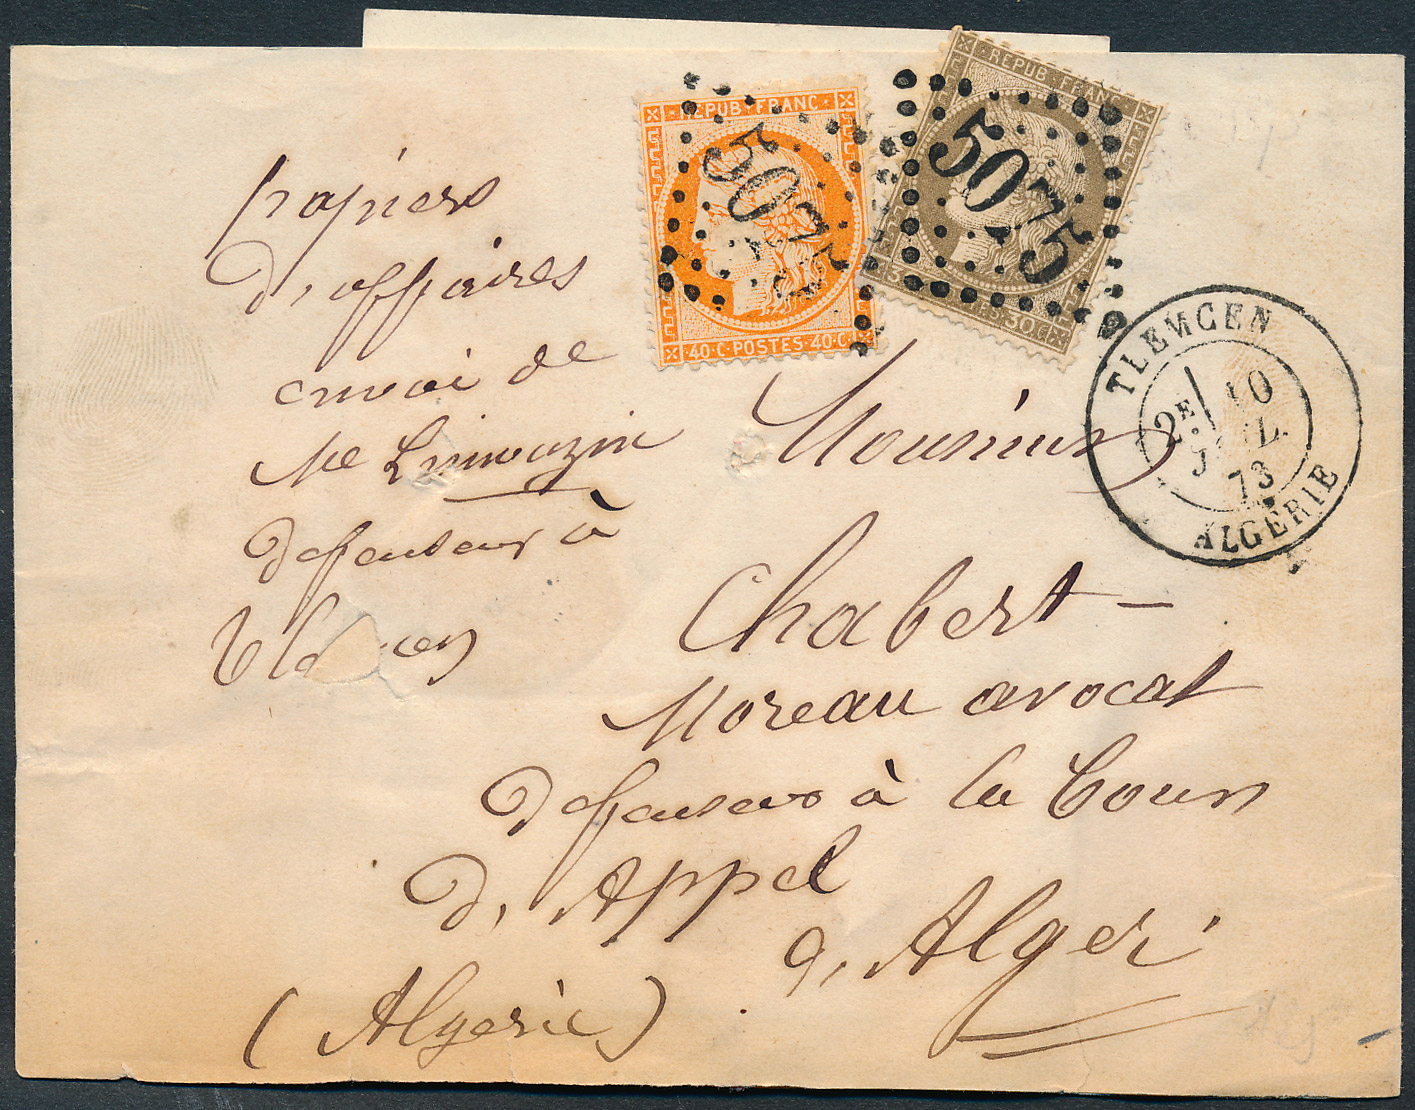 REPUB·FRANC
40·C·POSTES·40·C
REPUB·FRANC
30·C
5075
5075
TLEMCEN
2E 10
JUIL.
73
ALGÉRIE
papiers
d'affaires
envoi de
Me Limouzin
défenseur à
Tlemcen
Monsieur
Chabert-
Moreau avocat
défenseur à la Cour
d'Appel
d'Alger
(Algérie)